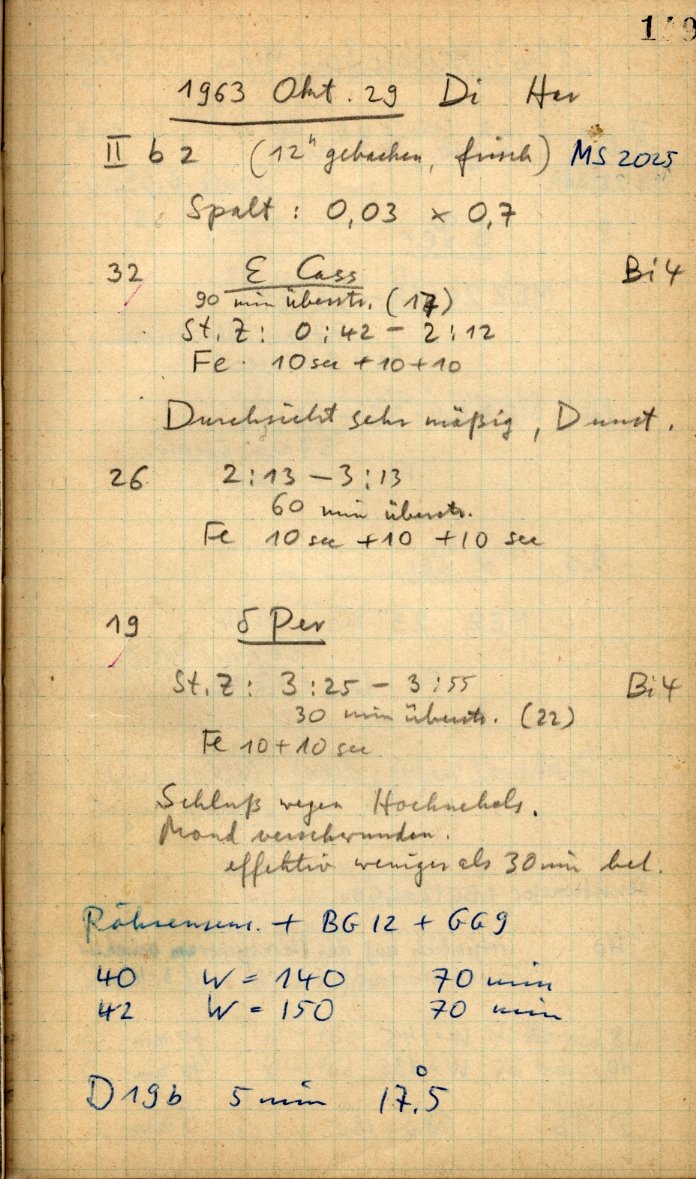 1963 Okt. 29 Di Her
II b 2 (12h gebacken, frisch) MS 2025
Spalt : 0,03 x 0,7
32 ε Cass Bi4
90 min überstr. (17)
St. Z : 0:42 - 2:12
Fe . 10 sec + 10 + 10
Durchsicht sehr mäßig, Dunst.
26 2:13 - 3:13
60 min überstr.
Fe 10 sec + 10 + 10 sec
19 δ Per
St. Z : 3:25 - 3:55 Bi4
30 min überstr. (22)
Fe 10 + 10 sec
Schluß wegen Hochnebels.
Mond verschwunden.
effektiv weniger als 30 min bel.
+ BG 12 + GG 9
40 W = 140 70 min
42 W = 150 70 min
D 19b 5 min 17,°5